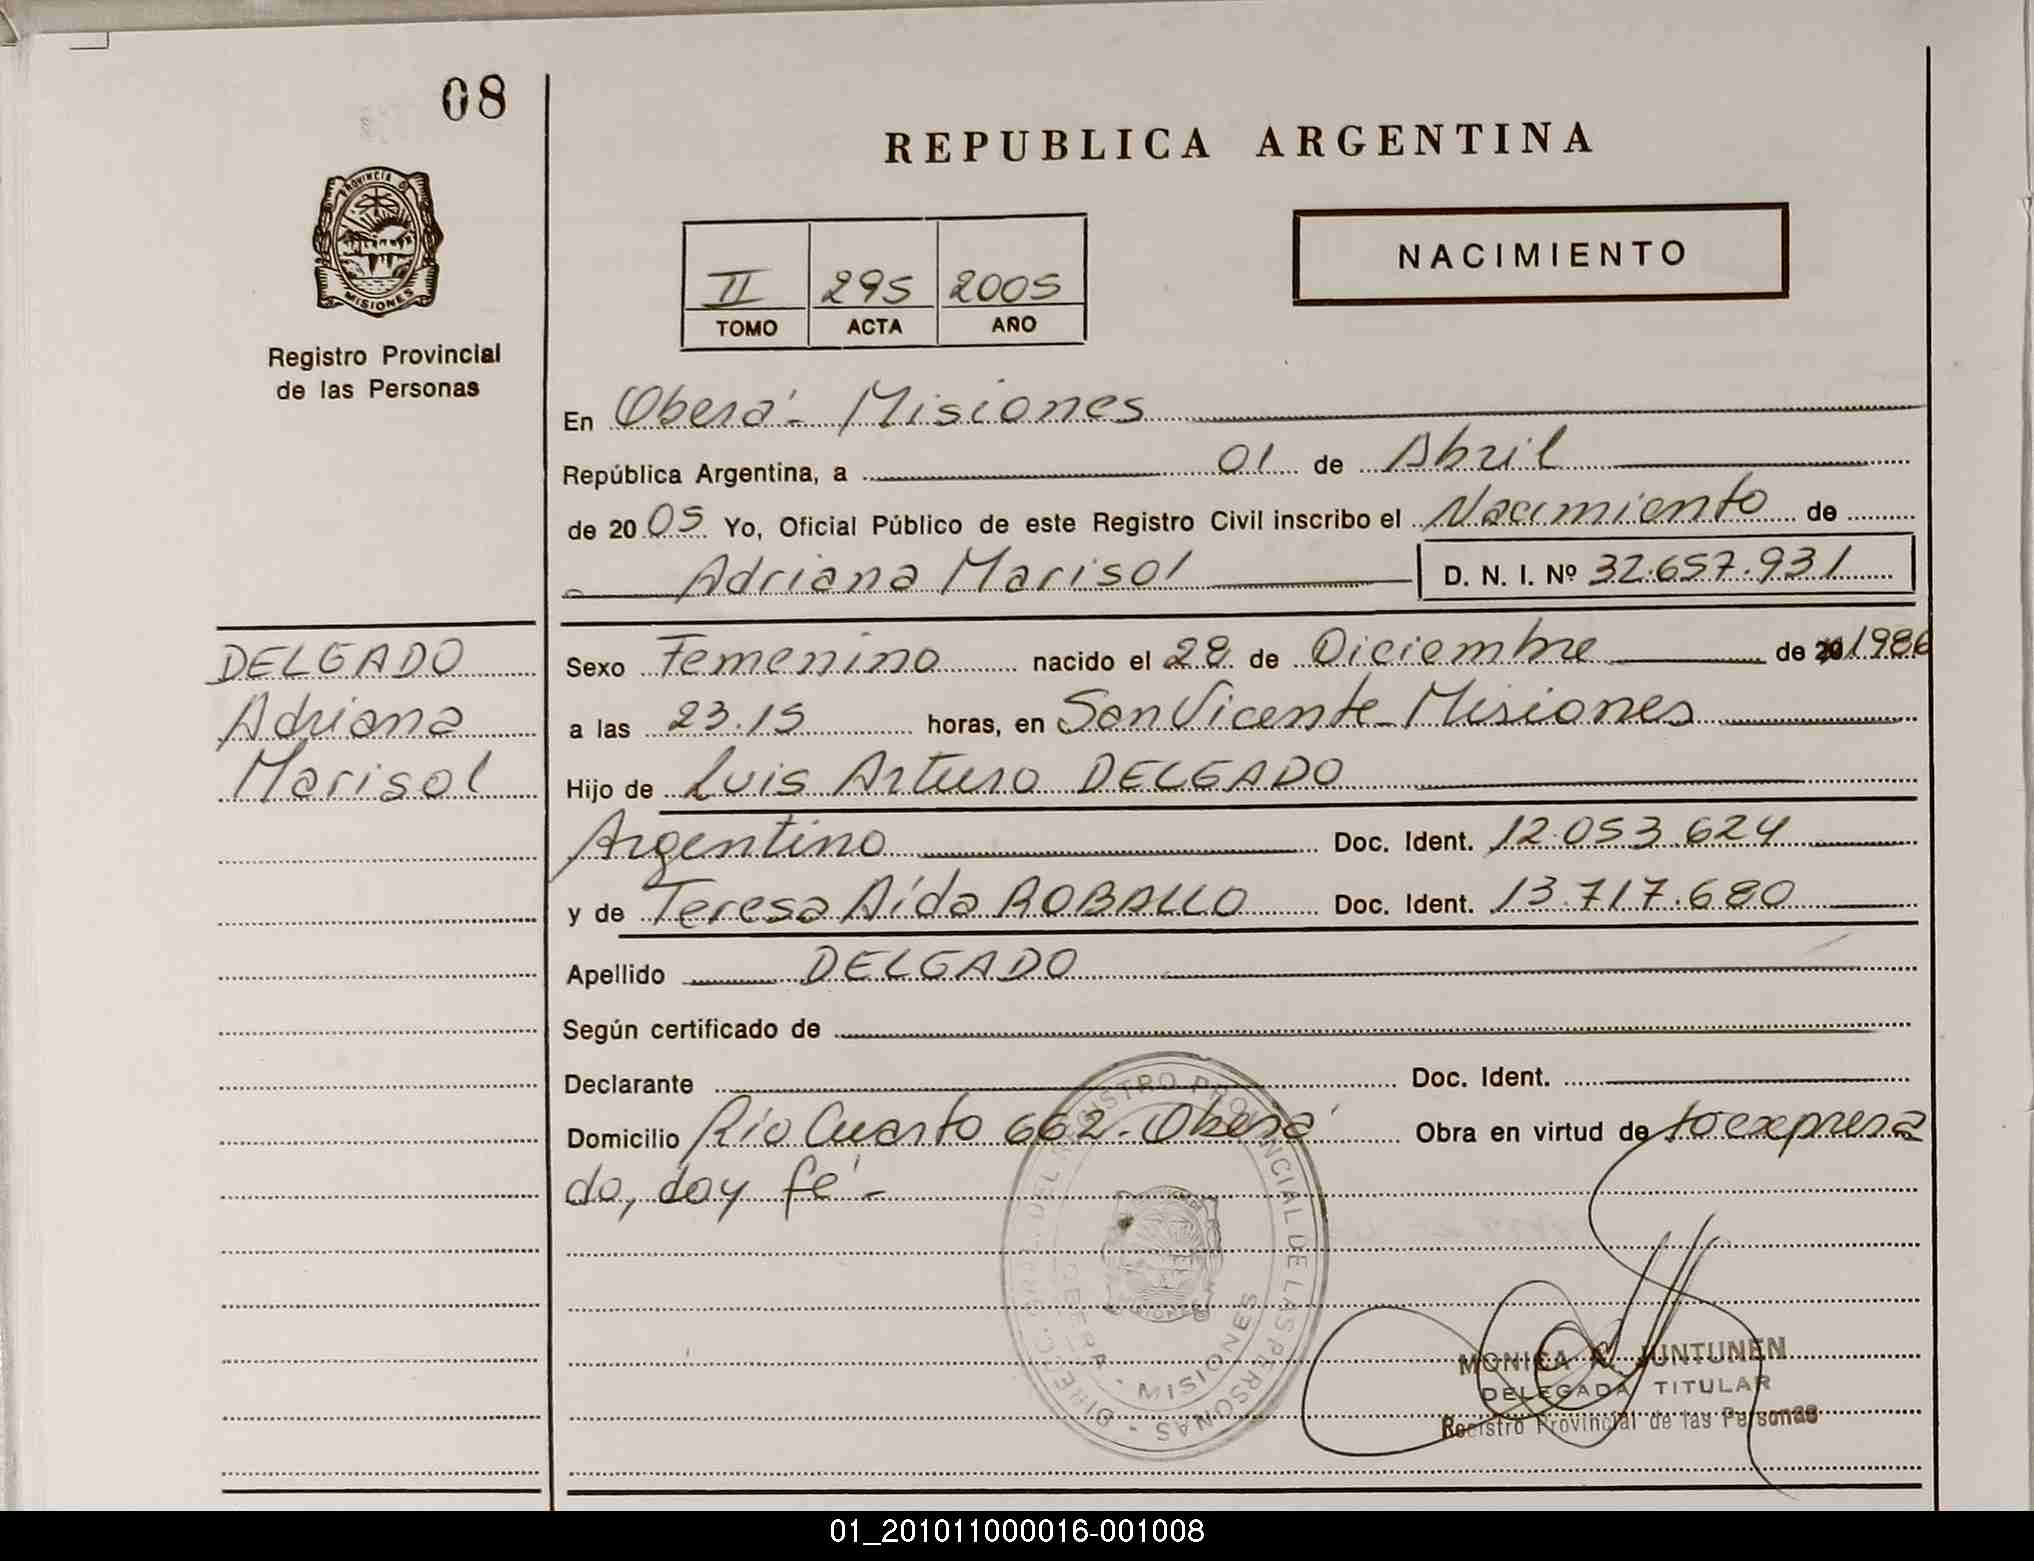 08
PROVINCIA DE
MISIONES
Registro Provincial
de las Personas
REPUBLICA ARGENTINA
NACIMIENTO
II 295 2005
TOMO ACTA AÑO
En Oberá - Misiones
República Argentina, a 01 de Abril
de 2005 Yo, Oficial Público de este Registro Civil inscribo el Nacimiento de
Adriana Marisol D. N. I. Nº 32.657.931
DELGADO
Adriana
Marisol
Sexo Femenino nacido el 28 de Diciembre de 20 1986
a las 23.15 horas, en San Vicente - Misiones
Hijo de Luis Arturo DELGADO
Argentino Doc. Ident. 12.053.624
y de Teresa Aída ROBALLO Doc. Ident. 13.717.680
Apellido DELGADO
Según certificado de
Declarante Doc. Ident.
Domicilio Río Cuarto 662 - Oberá Obra en virtud de lo expresa
do, doy fé -
DIRECC. GRAL. DEL REGISTRO PROVINCIAL DE LAS PERSONAS -
MISIONES
MONICA JUNTUNEN
DELEGADA TITULAR
Registro Provincial de las Personas
01_201011000016-001008